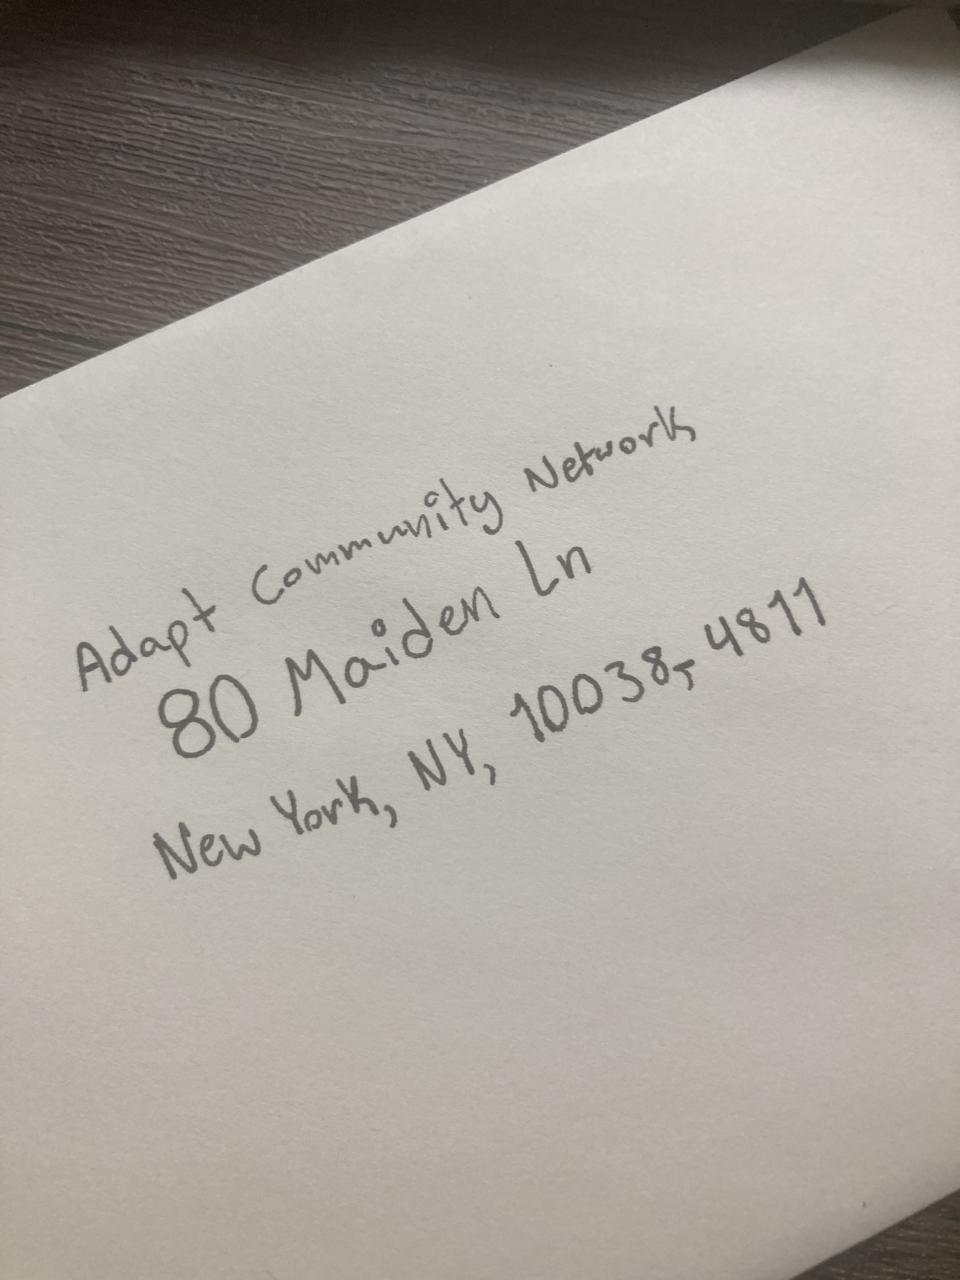 Adapt Community Network
80 Maiden Ln
New York, NY, 10038-4811